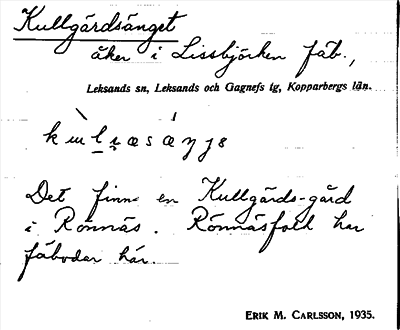 Kullgärdsänget
åker i Lissbjörken fäb.,
Leksands sn, Leksands och Gagnefs tg, Kopparbergs län.
Det finns en Kullgärds-gård
i Rönnäs. Rönnäsfolk har
fäbodar här.
ERIK M. CARLSSON, 1935.